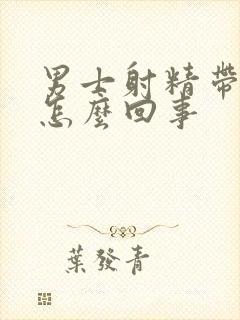 男士射精帶
怎麼回事
葉發青